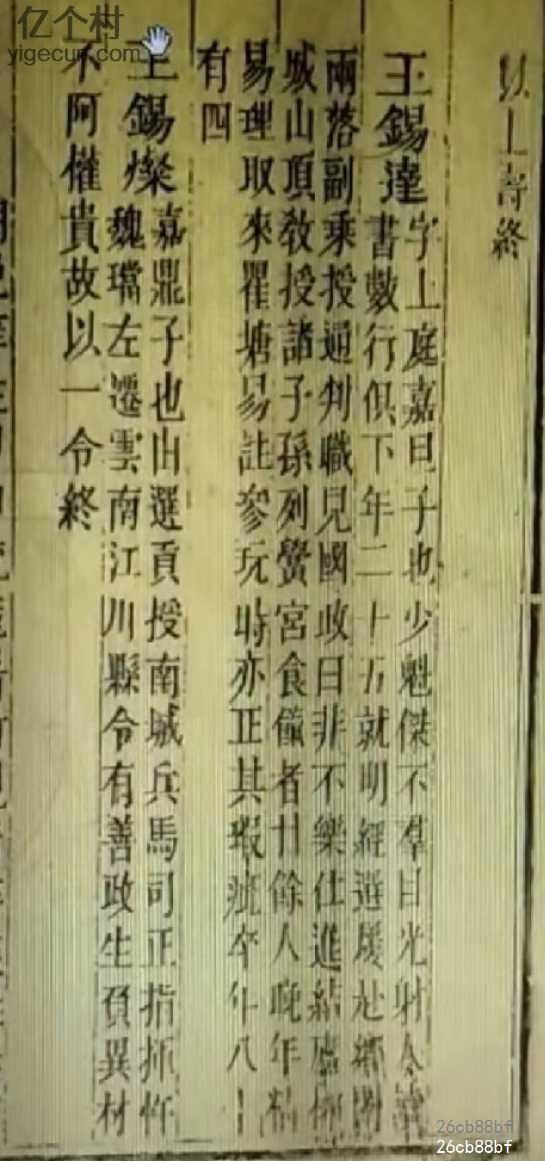 亿个村
yigecun.com
以上壽終
王錫達字上庭嘉旦子也少魁傑不羣目光射人讀
書數行俱下年二十五就明經選屢赴鄉闈
兩落副乘授通判職見國政日非不樂仕進結廬
城山頂教授諸子孫列黌宮食餼者廿餘人晚年精
易理取來瞿塘易註參玩時亦正其瑕疵卒年八十
有四
王錫燦嘉鼎子也由選貢授南城兵馬司正指揮忤
魏璫左遷雲南江川縣令有善政生負異材
不阿權貴故以一令終
26cb88bf
26cb88bf